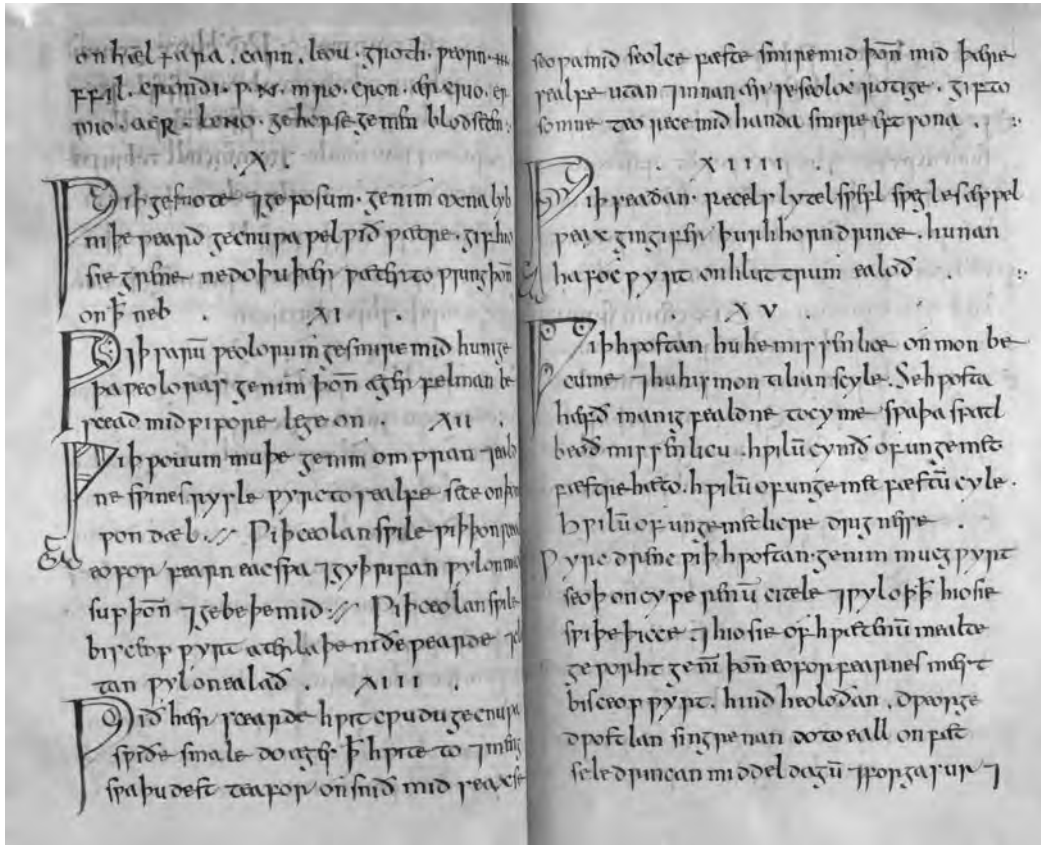 onhæl + ara . carn . leou . groth . ƿeorn . III
ffil . crondi . ƿ . X . mro . cron . ærcrio . er
mio . aeR . leNo . ge horse ge men blodseten :
. X .
Ƿiþ gesnote ⁊ geposum . genim oxna lyb
niþe ƿeard gecnuƿa ƿel ƿið ƿætre . gif hio
sie grene ne do þu þær ƿæter to ƿring þon̄
on ꝥ neb . XI .
Ƿiþ sarū ƿeolorum gesmire mid hunige
þa ƿeoloras genim þon̄ æger felman be
scead mid pipore lege on . XII .
Ƿiþ ƿouum muþe genim ompran ⁊ eald
ne sƿines rysle ƿyrc to sealfe sete on þon
ƿon dæl . Ƿiþ ceolan sƿile ƿiþ þon sona
eofor fearn eac sƿa ⁊ gyþrifan ƿyl on
sup þon̄ ⁊ gebeþe mid . Ƿiþ ceolan sƿile
bisceop ƿyrt aterlaþe niðe ƿearde ⁊ cla
tan ƿyl on ealað . XIII .
Ƿið hær sceard hƿit cƿudu gecnuƿa
sƿiðe smale do æges ꝥ hƿite to ⁊ meng
sƿa þu dest teafor on snið mid seaxe
seoƿa mid seolce fæste smire mid þon̄ mid þære
sealfe utan ⁊ innan ær se seoloc rotige . gif to
somne teo rece mid handa smire eft sona . :
. XIIII .
Ƿiþ recels lytel sƿefl sƿegles æppel
ƿeax gingifer þurh horn drince . hunan
hafoc ƿyrt on hluttrum ealoð . :
. XV
Ƿiþ hƿostan hu he missenlice on mon be
cume ⁊ hu his mon tilian scyle . Se hƿosta
hæfð manigfealdne tocyme sƿa þa spatl
beoð missenlicu . hƿilū cymð of ungemet
fæstre hæto . hƿilū of ungemet fæstū cyle .
hƿilū of ungemetlicre drignesse .
Ƿyrc drenc ƿiþ hƿostan . genim mucgƿyrt
seoþ on cyperenū citele ⁊ ƿyl oþ ꝥ hio sie
sƿiþe þicce . ⁊ hio sie of hƿætenū mealte
geƿorht genī þon̄ eofor fearnes mæst
bisceop ƿyrt . hind heolodan . dƿeorge
dƿostlan singrenan do to eall on fæt
sele drincan middeldagū ⁊ forga sur ⁊